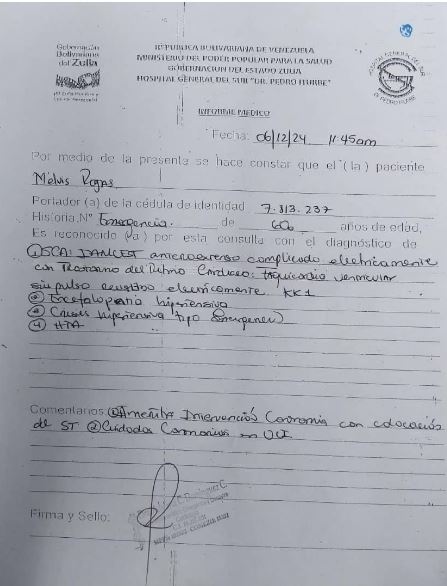 Gobernación
Bolivariana
del Zulia
REPÚBLICA BOLIVARIANA DE VENEZUELA
MINISTERIO DEL PODER POPULAR PARA LA SALUD
GOBERNACION DEL ESTADO ZULIA
HOSPITAL GENERAL DEL SUR "DR. PEDRO ITURBE"
HOSPITAL GENERAL DEL SUR
Dr PEDRO ITURBE
INFORME MEDICO
Fecha: 06/12/24 11:45am
Por medio de la presente se hace constar que el (la) paciente
Rojas
Portador (a) de la cédula de identidad 7.813.237
Historia N° Emergencia. de 60 años de edad,
Es reconocido (a) por esta consulta con el diagnóstico de
① SCA: complicado electricamente
con Trastorno del Ritmo Cardiaco: taquicardia ventricular
sin pulso electricamente KK1
② Encefalopatia hipertensiva
③ Crisis hipertensiva tipo Emergencia
④ HTA
Comentarios ① Amerita Intervención Coronaria con colocación
de ST ② Cuidados Coronarios en UCI
Firma y Sello: